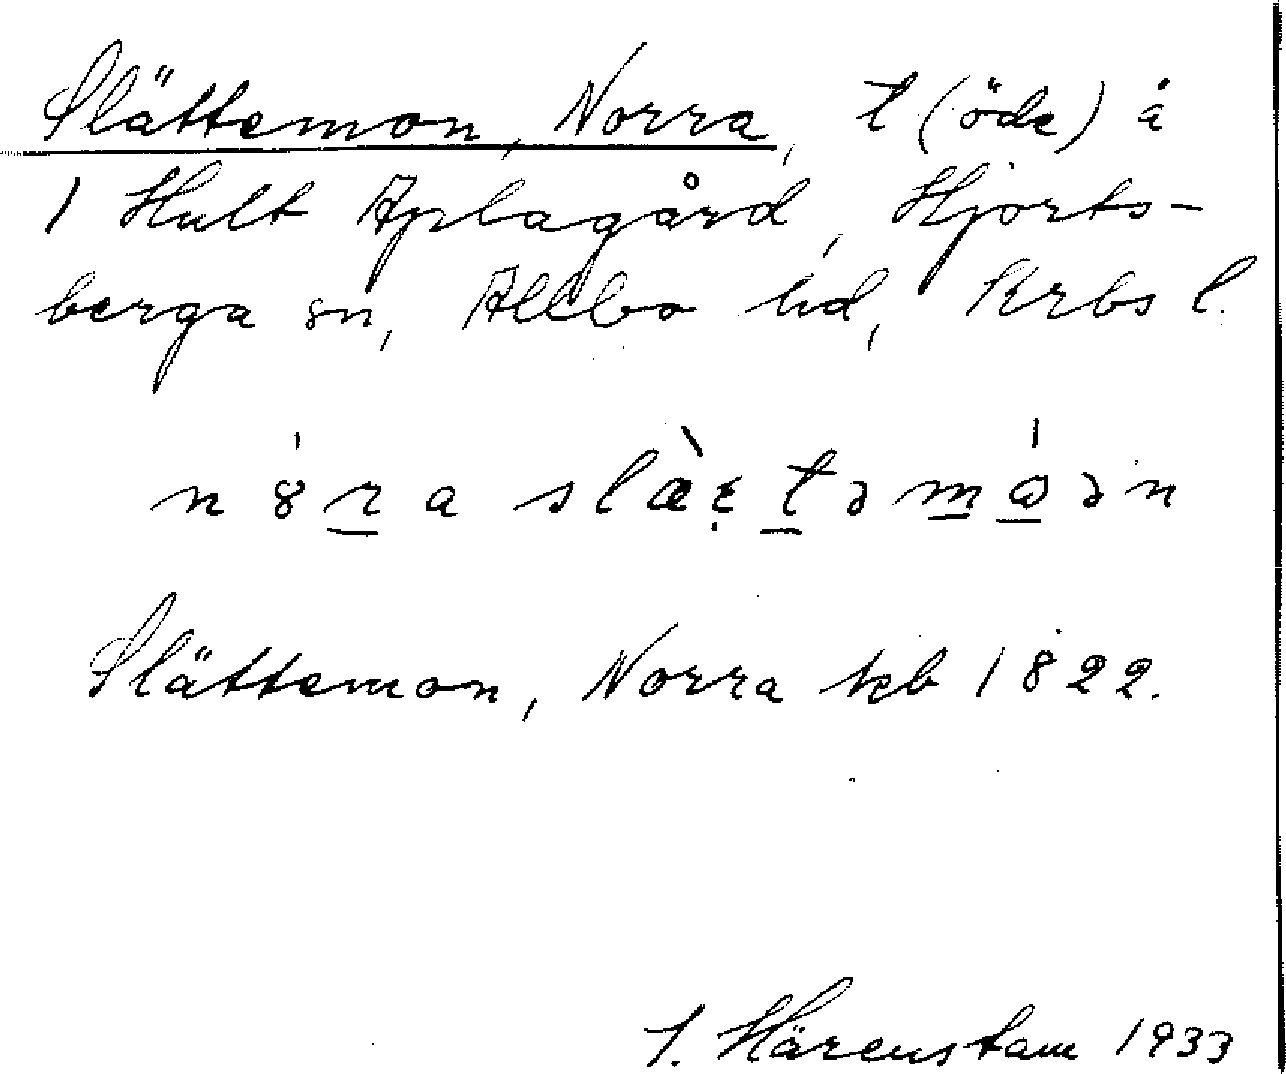 Slättemon, Norra, t (öde) å
1 Hult Aplagård, Hjorts-
berga sn, Allbo hd, Krbs l.
Slättemon, Norra kb 1822.
Härenstam 1933